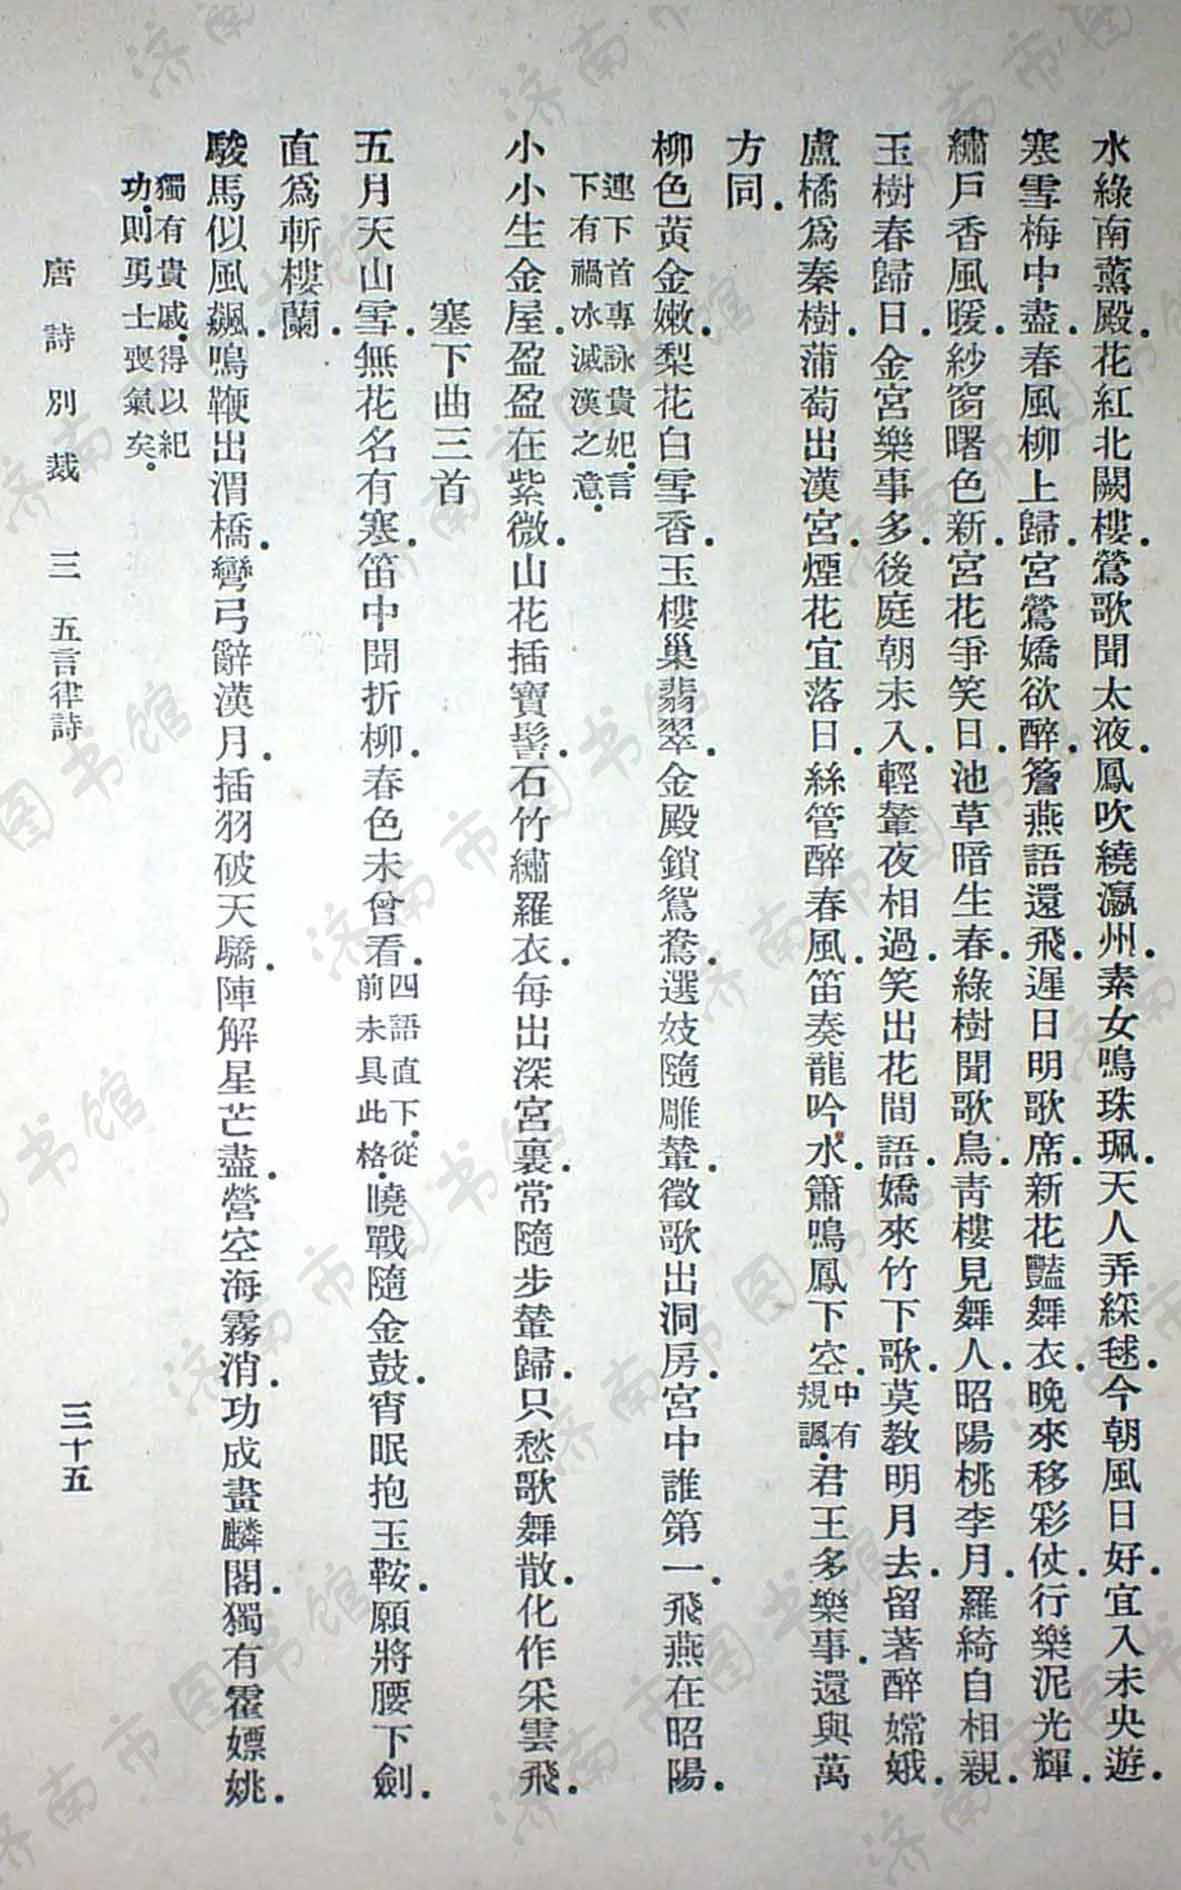 水綠南薰殿．花紅北闕樓．鶯歌聞太液．鳳吹繞瀛州．素女鳴珠珮．天人弄綵毬．今朝風日好．宜入未央遊．
寒雪梅中盡．春風柳上歸．宮鶯嬌欲醉．簷燕語還飛．遲日明歌席．新花豔舞衣．晚來移彩仗．行樂泥光輝．
繡戶香風暖．紗窗曙色新．宮花爭笑日．池草暗生春．綠樹聞歌鳥．青樓見舞人．昭陽桃李月．羅綺自相親．
玉樹春歸日．金宮樂事多．後庭朝未入．輕輦夜相過．笑出花間語．嬌來竹下歌．莫教明月去．留著醉嫦娥．
盧橘爲秦樹．蒲萄出漢宮．煙花宜落日．絲管醉春風．笛奏龍吟水．簫鳴鳳下空．中有規諷．君王多樂事．還與萬
方同．
柳色黃金嫩．梨花白雪香．玉樓巢翡翠．金殿鎖鴛鴦．選妓隨雕輦．徵歌出洞房．宮中誰第一．飛燕在昭陽．
連下首專詠貴妃．言
下有禍水滅漢之意．
小小生金屋．盈盈在紫微．山花插寶髻．石竹繡羅衣．每出深宮裏．常隨步輦歸．只愁歌舞散．化作采雲飛．
塞下曲三首
五月天山雪．無花名有寒．笛中聞折柳．春色未曾看．四語直下．從前未具此格．曉戰隨金鼓．宵眠抱玉鞍．願將腰下劍．
直爲斬樓蘭．
駿馬似風飆．鳴鞭出渭橋．彎弓辭漢月．插羽破天驕．陣解星芒盡．營空海霧消．功成畫麟閣．獨有霍嫖姚．
獨有貴戚．得以紀
功．則勇士喪氣矣．
唐詩別裁 三 五言律詩 三十五
济南市图书馆